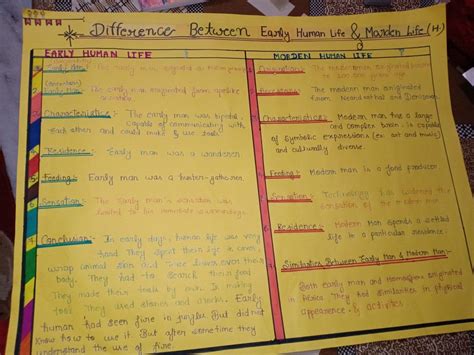 Difference Between Early Human Life & Morden Life (H.)
EARLY HUMAN LIFE
Early man originated from apelike
3. Characteristics:- The early man was bipedal,
capable of communicating with
each other and could make & use tools.
4. Residence:- Early man was a wanderer.
5. Feeding:- Early man was a hunter-gatherer.
6. Sensation:- The Early man's sensation was
limited to his immediate surroundings.
7. Conclusion:- In early days, human life was very
hard. They spent their life in caves,
wrap animal skin and tree leaves over their
body. They had to search their food
They made their tools by own. Is making
tools They used stones and rocks. Early
human had seen fire in jungles But did not
know how to use it. But after sometime they
understand the use of fire.
MORDEN HUMAN LIFE
The modern man originated
from Neanderthal and Denisovan.
Characteristics:- Modern man has a large
and complex brain & is capable
of symbolic expressions (ex: art and music)
and culturally diverse.
Feeding:- Modern man is a food producer.
Sensation:- Technology has widened the
sensation of the modern man
Residence:- Modern Man spends a settled
life to a particular residence.
Similarities Between Early Man & Modern Man:-
Both early man and Homosapiens originated
in Africa They had similarities in physical
appearence & activities